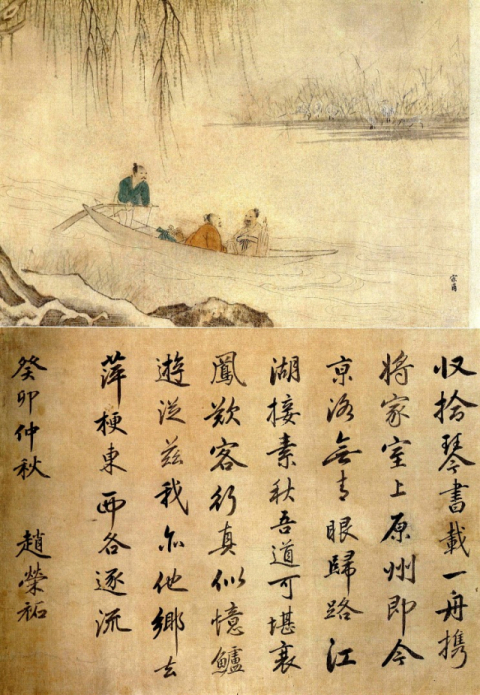 宗甫
収拾琴書載一舟携
将家室上原州即今
京洛無青眼歸路江
湖接素秋吾道可堪衰
鳳歎客行真似憶鱸
遊從茲我亦他鄉去
萍梗東西各逐流
癸卯仲秋 趙榮祏